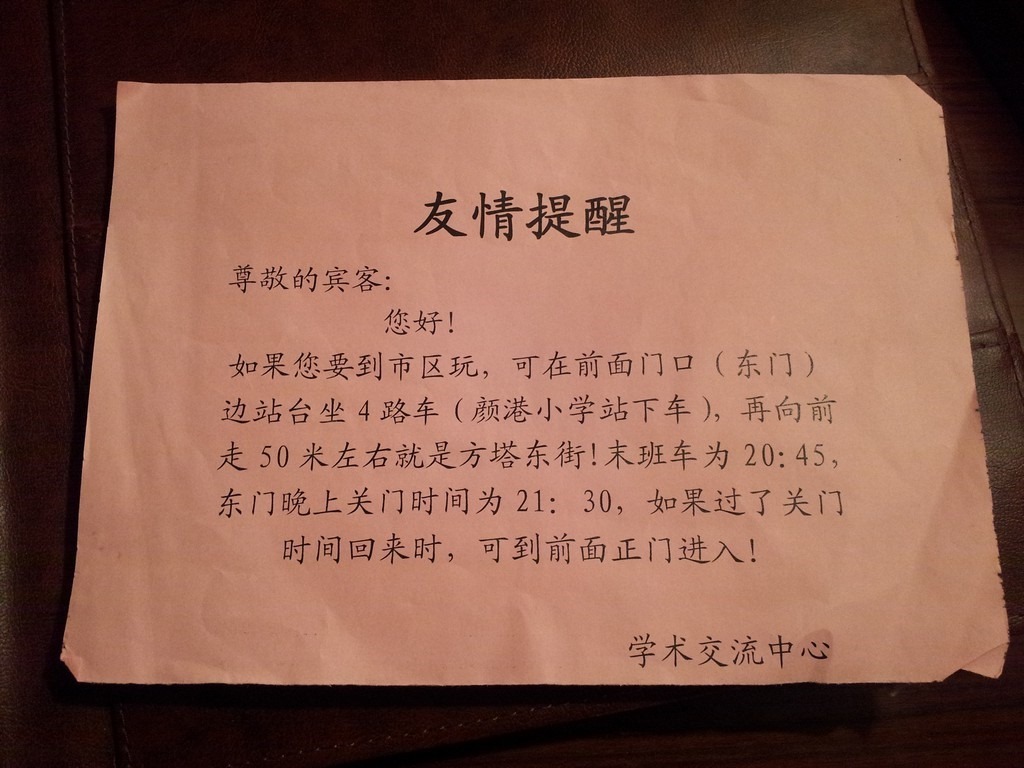 友情提醒
尊敬的宾客：
您好！
如果您要到市区玩，可在前面门口（东门）
边站台坐 4 路车（颜港小学站下车），再向前
走 50 米左右就是方塔东街！末班车为 20：45，
东门晚上关门时间为 21： 30，如果过了关门
时间回来时，可到前面正门进入！
学术交流中心